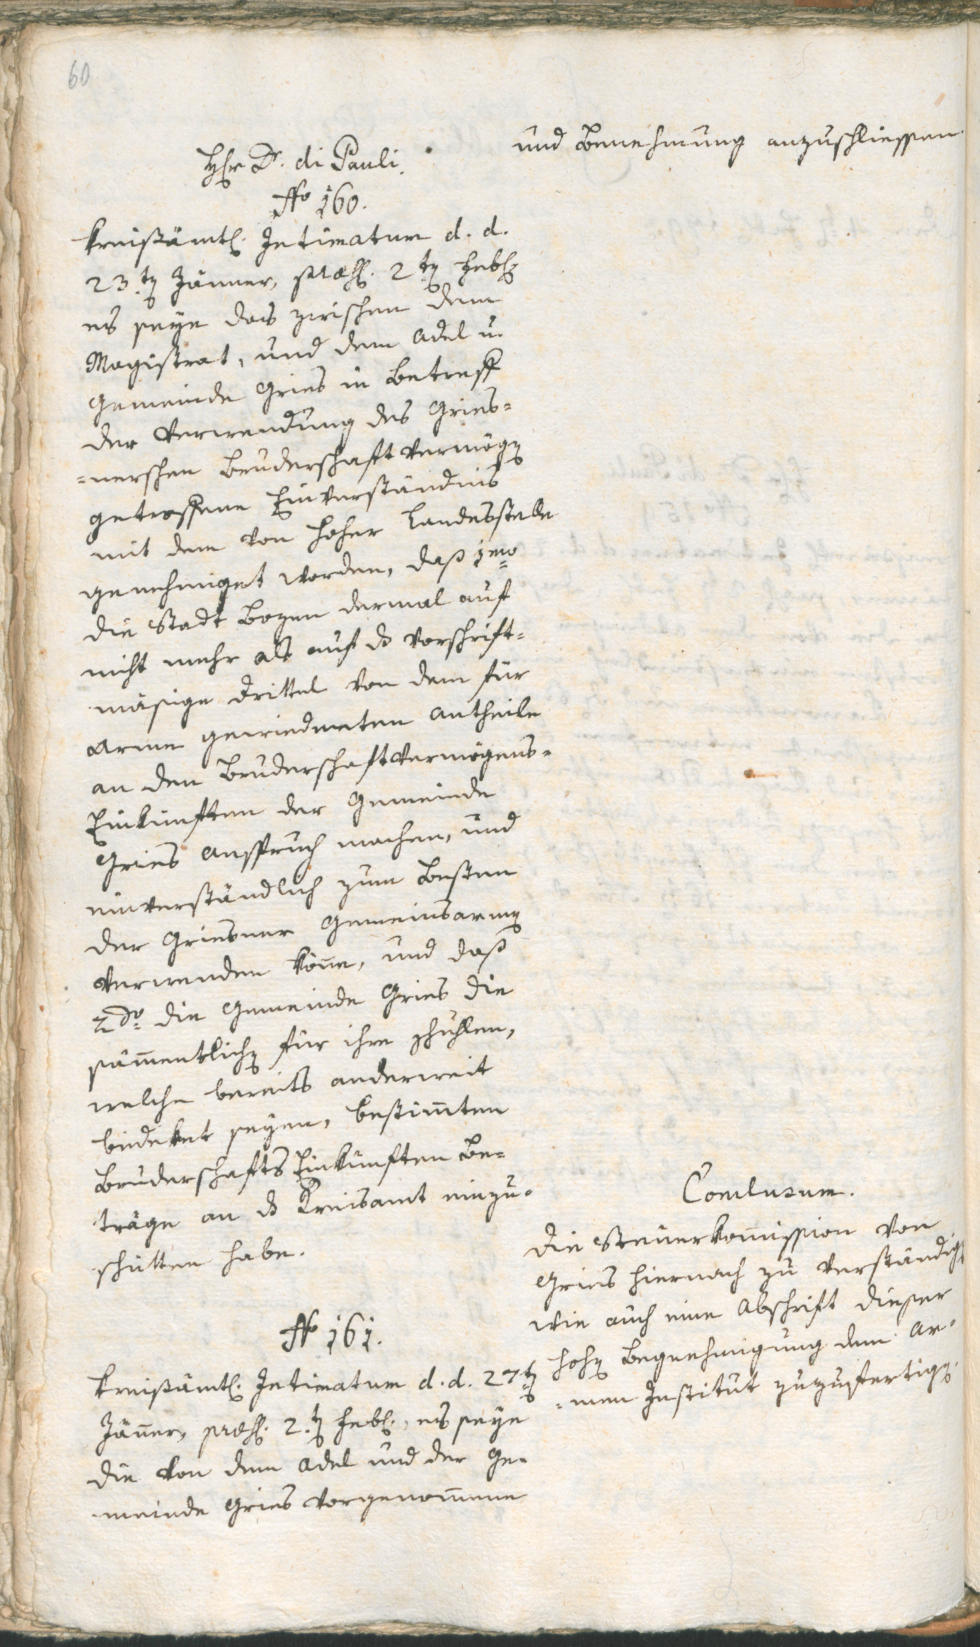 60
Hr Dr. di Pauli.
No 160.
kreißämtl. Intimatum d. d.
23.ten Jänner, præs. 2ten Febr.
es seye das zwischen dem
Magistrat, und dem Adel u.
Gemeinde Gries in Betreff
der Verwendung des Gries-
=nerschen Bruderschaft Vermögen
getroffene Einverständnis
mit dem von hoher Landesstelle
genehmiget worden, daß 1mo
die Stadt Bozen dermal auf
nicht mehr als auf ds vorschrift-
mäsige Drittel von dem für
Arme gewiedmeten Antheile
an den Bruderschaft Vermögens-
Einkünften der Gemeinde
Gries Anspruch machen, und
einverständlich zum Besten
der Griesner Gemeindsarmen
verwenden könne, und daß
2do die Gemeinde Gries die
sämentlichen für ihre Schulen,
welche bereits anderweit
bedeket seyen, bestimten
Bruderschafts Einkünften Be-
träge an ds Kreisamt einzu-
schütten habe.
No 161.
kreißämtl. Intimatum d. d. 27ten
Jäner, præs. 2.ten Febr., es seye
die von dem Adel und der Ge-
meinde Gries vorgenomene
und Benehmung anzuschliessen.
Conclusum.
Die Steuerkomission von
Gries hiernach zu verständigen
wie auch eine Abschrift dieser
hohen Begnehmigung dem Ar-
=men Institut zuzufertigen.